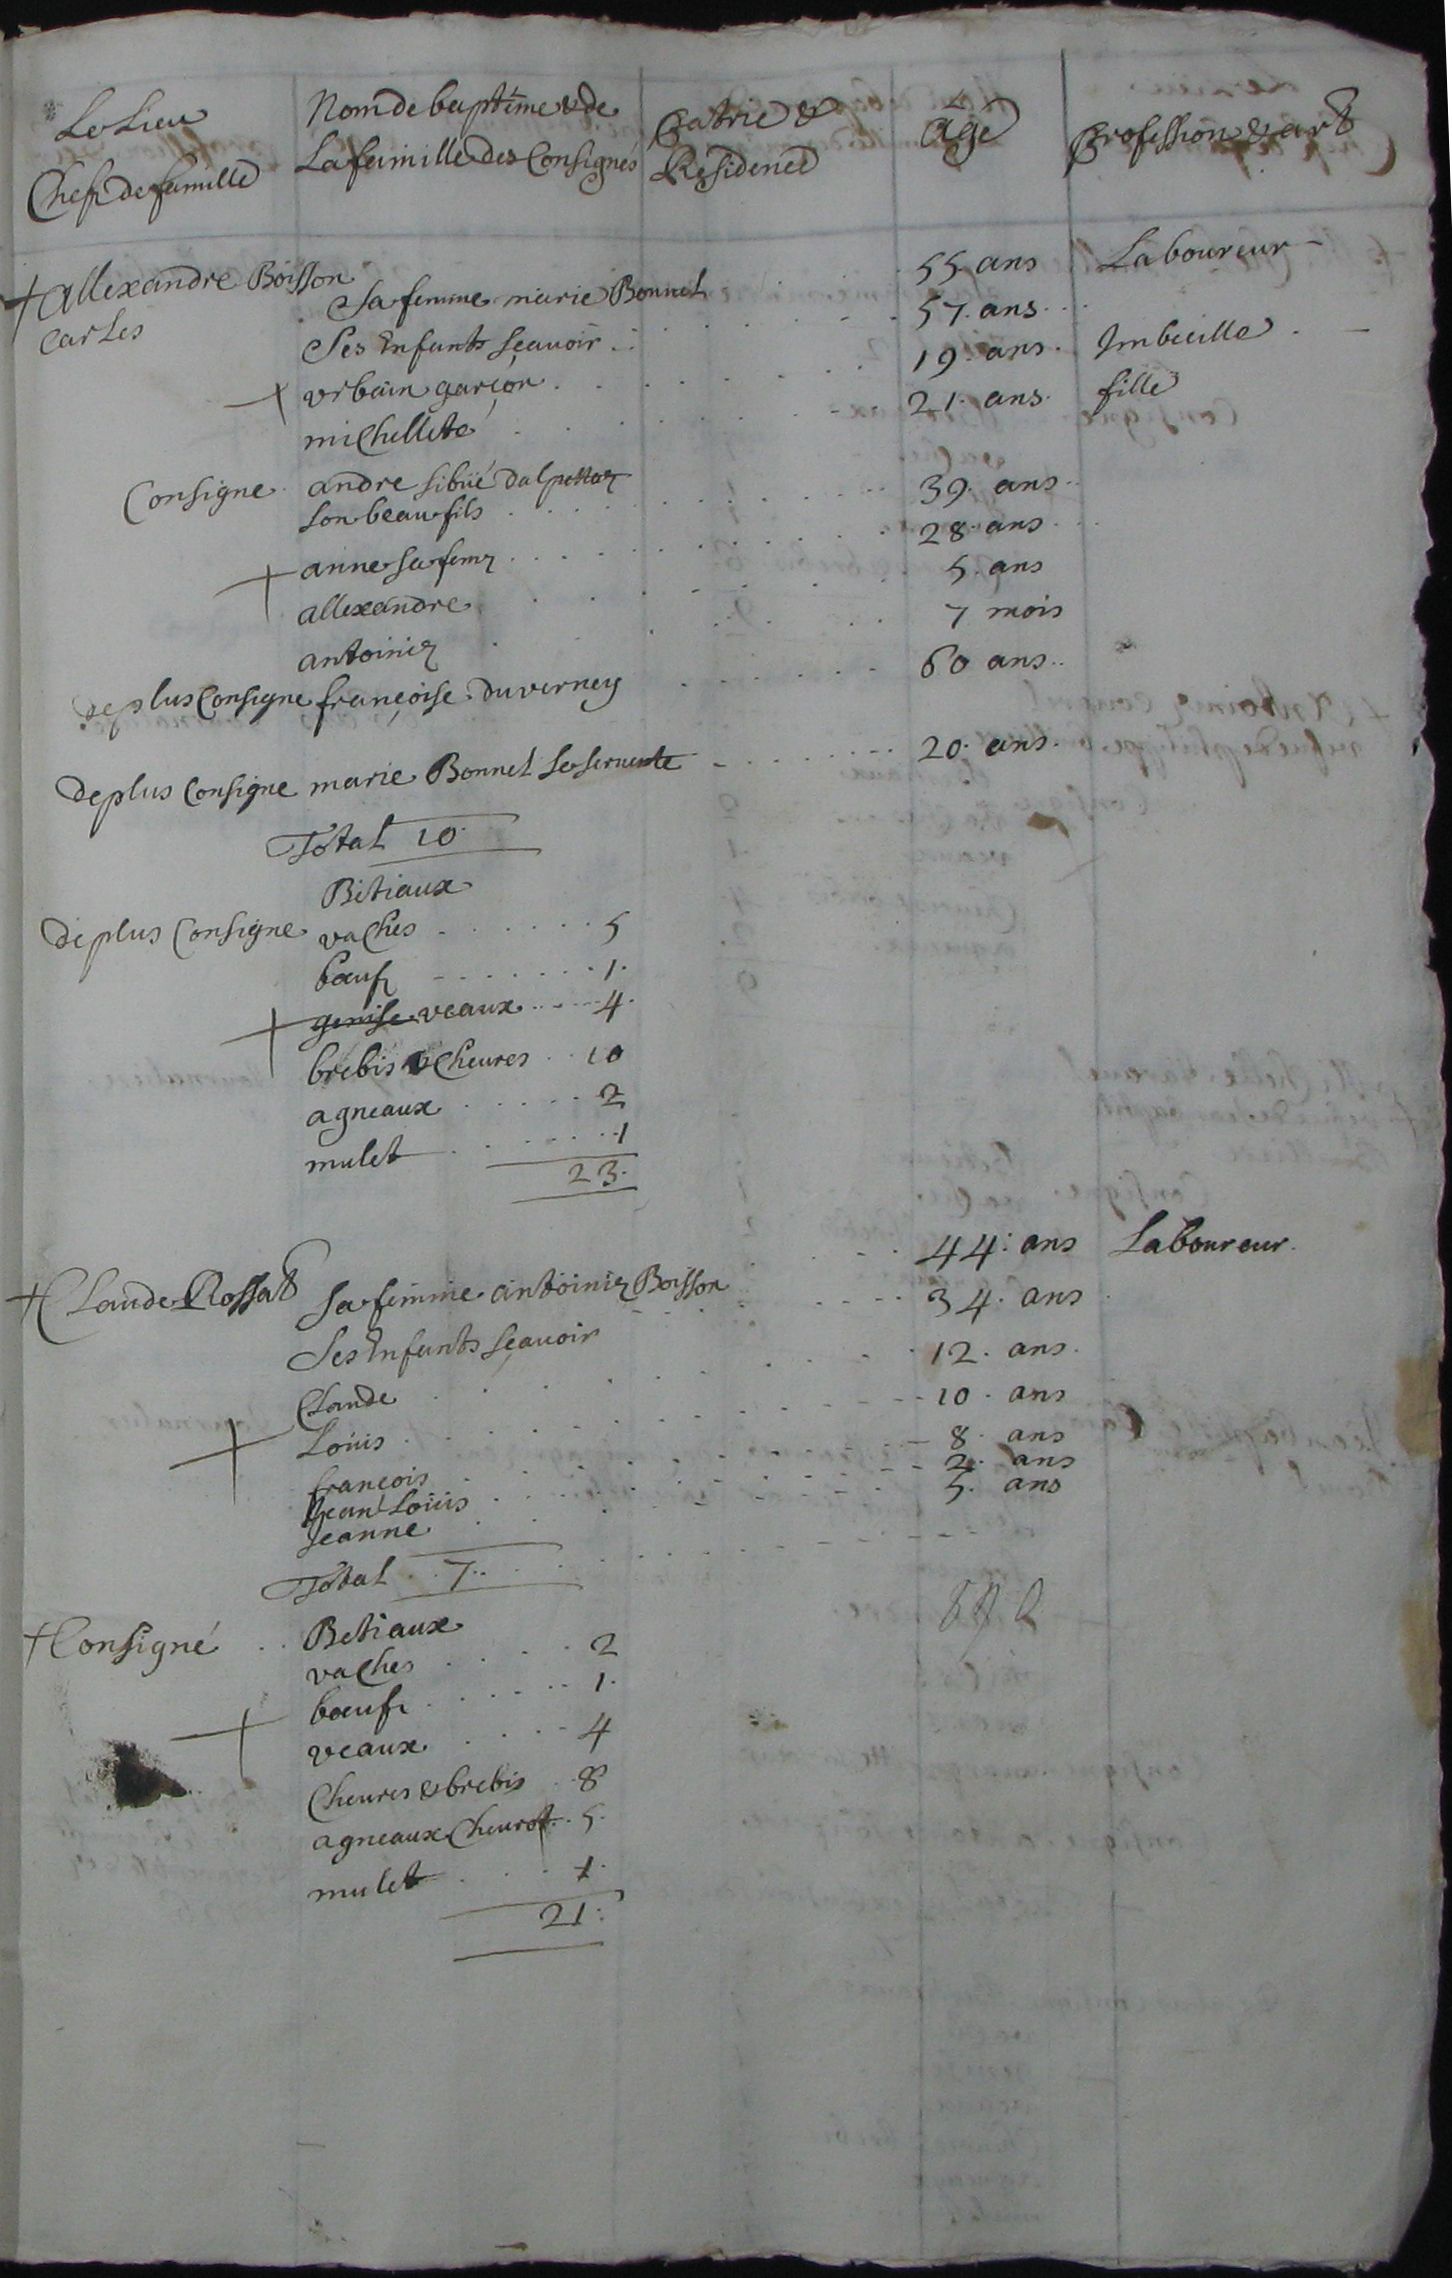 Le Lieu
Chef de famille
Nom de baptême & de
La famille des Consignés
Patrie &
Residence
âge
Profession & art
+ allexandre Boisson 55 ans Laboureur
Carles
Sa femme marie Bonnet 57 ans
Ses Enfants sçauoir
+ vrbain garçon 19 ans Imbecille
michelleté 21 ans fille
Consigne andre sibüé
son beau fils 39 ans
+ anne sa fem̃ 28 ans
allexandre 5 ans
antoinie 7 mois
de plus Consigne françoise duverney 60 ans
de plus Consigne marie Bonnet sa seruente 20 ans
Total 10
Bitiaux
de plus Consigne vaches 5
bœuf 1
+ genise veaux 4
brebis & cheures 10
agneaux 2
mulet 1
23
+ Claude Rossat 44 ans Laboureur
sa femme antoinie Boisson 34 ans
Ses Enfants sçauoir
Claude 12 ans
+ Loüis 10 ans
françois 8 ans
Jean Loüis 2 ans
Jeanne 5 ans
Total 7
+ Consigné Betiaux
vaches 2
+ bœuf 1
veaux 4
Cheures & brebis 8
agneaux Cheurot 5
mulet 1
21